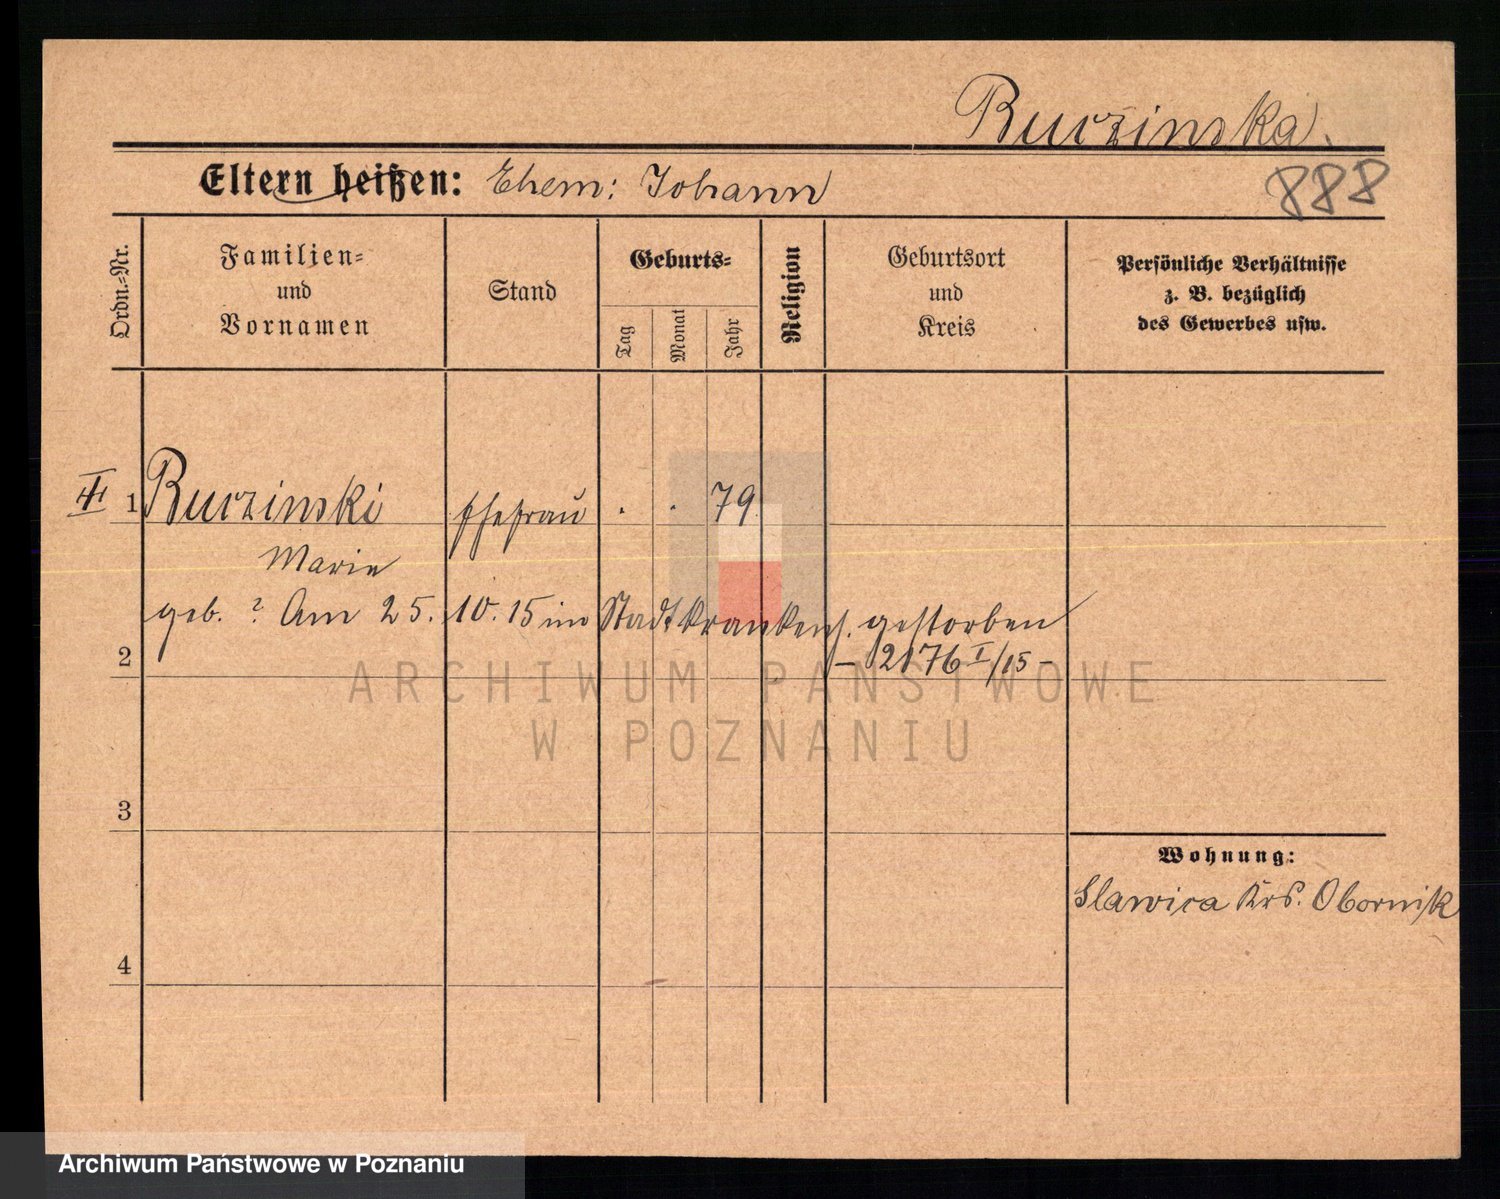 Burzinska.
Eltern heißen: Ehem: Johann
888
Ordn.-Nr.
Familien-
und
Vornamen
Stand
Geburts-
Tag
Monat
Jahr
Religion
Geburtsort
und
Kreis
Persönliche Verhältnisse
z. B. bezüglich
des Gewerbes usw.
1 Burzinski Ehefrau . . 79
Marie
geb. ? Am 25. 10. 15 im Stadtkrankenh. gestorben
2 – 2176 I/15 –
3
Wohnung:
Slawica Krs. Obornik
4
ARCHIWUM PAŃSTWOWE
W POZNANIU
Archiwum Państwowe w Poznaniu